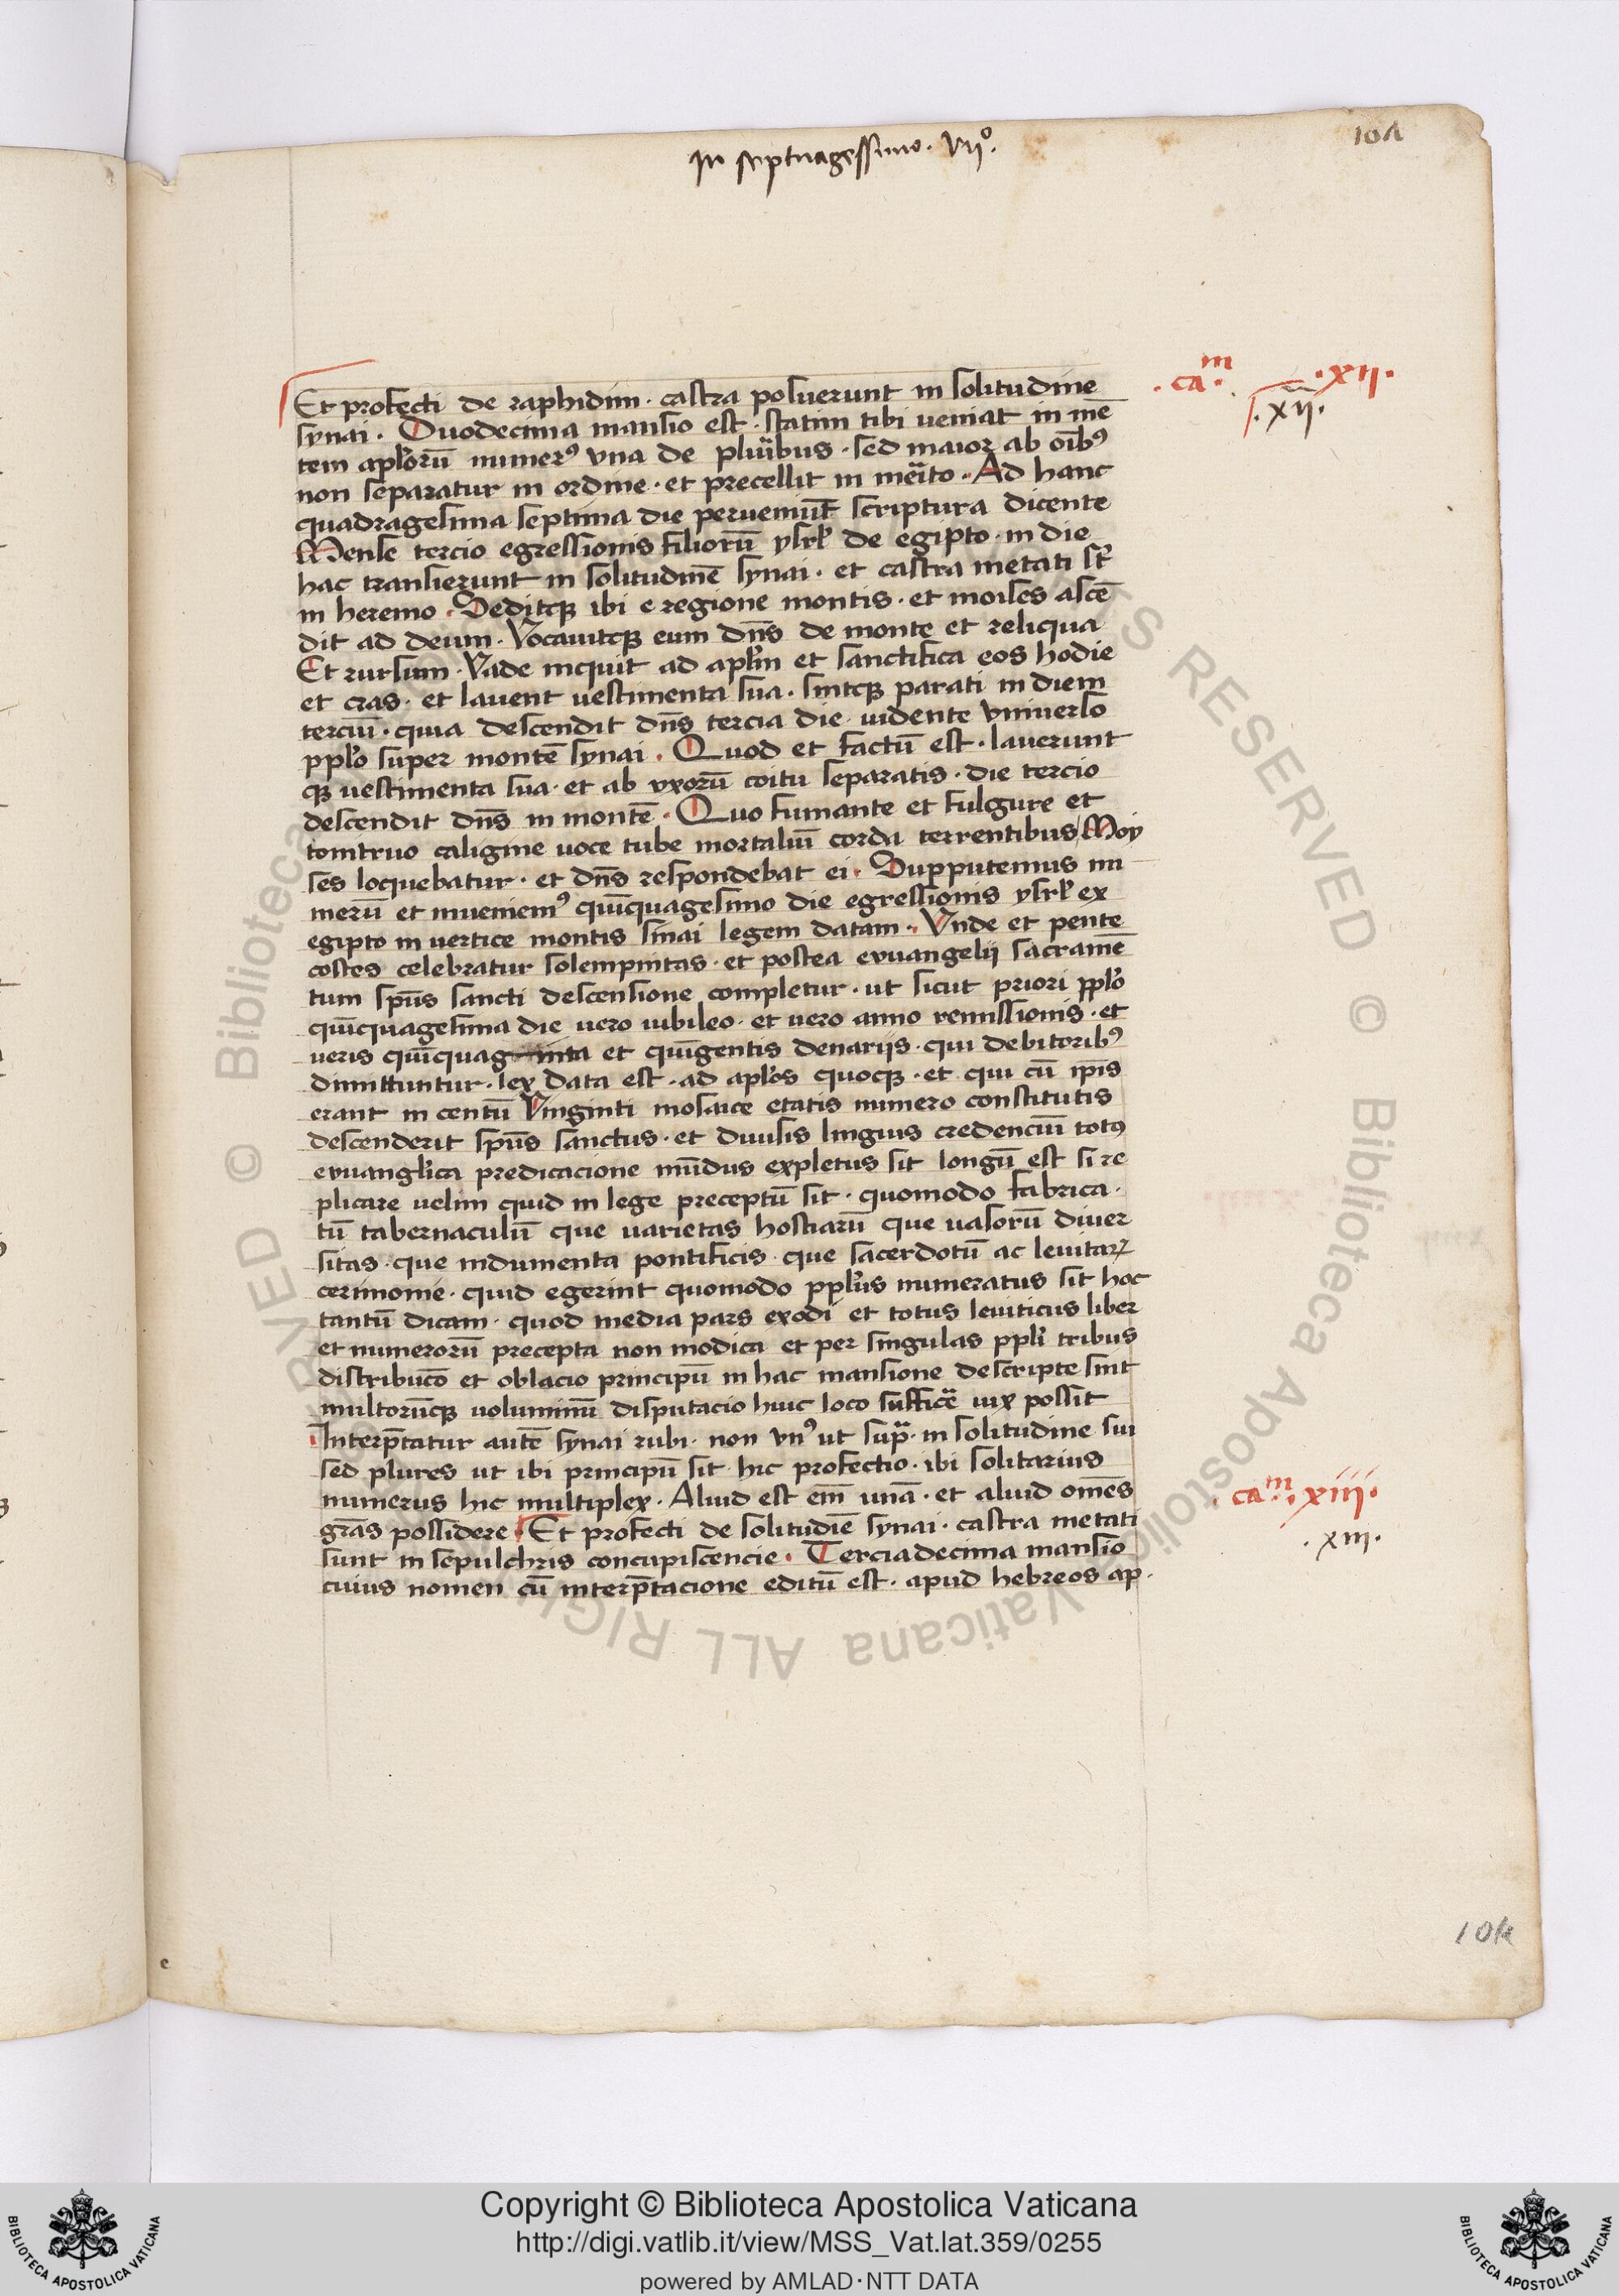 In septuagessimo. vijº.
101
.caᵐ. .xij.
.xij.
Et profecti de raphidim · castra posuerunt in solitudine
synai · Duodecima mansio est · statim tibi veniat in mē
tem aplʼorū numerꝰ vna de plurībus · sed maior ab oībꝰ
non separatur in ordine · et precellit in merito · Ad hanc
quadragesima septima die peruenīut scriptura dicente
Mense tercio egressionis filiorū ysrłʼ de egipto · in die
hac transierunt in solitudinē synai · et castra metati st̄
in heremo · Seditqꝫ ibi e regione montis · et moises ascē
dit ad deum · Vocauitqꝫ eum dn̄s de monte et reliqua
Et rursum · Vade inquit ad aplʼm et sanctifica eos hodie
et cras · et lauent uestimenta sua · sintqꝫ parati in diem
terciū · quia descendit dn̄s tercia die · uidente vniuerso
pplʼo super montē synai · Quod et factū est · lauerunt
qꝫ uestimenta sua · et ab vxorū coitu separatis · die tercio
descendit dn̄s in montē · Quo fumante et fulgure et
tonitruo caligine uoce tube mortaliū corda terrentibus / Moy
ses loquebatur · et dn̄s respondebat ei · Supputemus nu
merū et inueniemꝰ quīquagesimo die egressionis ysrłʼ ex
egipto in vertice montis sinai legem datam · Vnde et pente
costes celebratur solempnitas · et postea evuangelij sacramē
tum spūs sancti descensione completur · ut sicut priori pplʼo
quīquagesima die uero iubileo · et uero anno remissionis · et
ueris quīquaginta et quīgentis denarijs · qui debitoribꝰ
dimittuntur · lex data est · ad aplʼos quoqꝫ · et qui cū ip̄is
erant in centū Vinginti mosaice etatis numero constitutis
descenderit spūs sanctus · et diuisis linguis credenciū totꝰ
evuanglʼica predicacione mūdus expletus sit longū est si re
plicare uelim quid in lege preceptū sit · quomodo fabrica ·
tū tabernaculū que varietas hostiarū que uasorū diuer
sitas · que indumenta pontificis · que sacerdotū ac leuitarꝝ
cerimonie · quid egerint quomodo pplʼus numeratus sit hoc
tantū dicam · quod media pars exodi et totus leuiticus liber
et numerorū precepta non modica et per singulas pplʼi tribus
distribuc̄o et oblacio principū in hac mansione descripte sint
multorūqꝫ voluminū disputacio huic loco sufficē uix possit
Interp̄tatur autē synai rubi · non vnꝰ ut sup̄a · in solitudine sin
sed plures ut ibi principiū sit hic profectio · ibi solitarius
numerus hic multiplex · Aliud est em̄ unā · et aliud om̄es
grās possidere · Et profecti de solitudīe synai · castra metati
sunt in sepulchris concupiscencie · Terciadecima mansio
cuius nomen cū interp̄tacione editū est · apud hebreos ap ·
.caᵐ. .xiij.
.xiij.
101
© Biblioteca Apostolica Vaticana ALL RIGHTS RESERVED
Copyright © Biblioteca Apostolica Vaticana
http://digi.vatlib.it/view/MSS_Vat.lat.359/0255
powered by AMLAD·NTT DATA
BIBLIOTECA APOSTOLICA VATICANA
BIBLIOTECA APOSTOLICA VATICANA